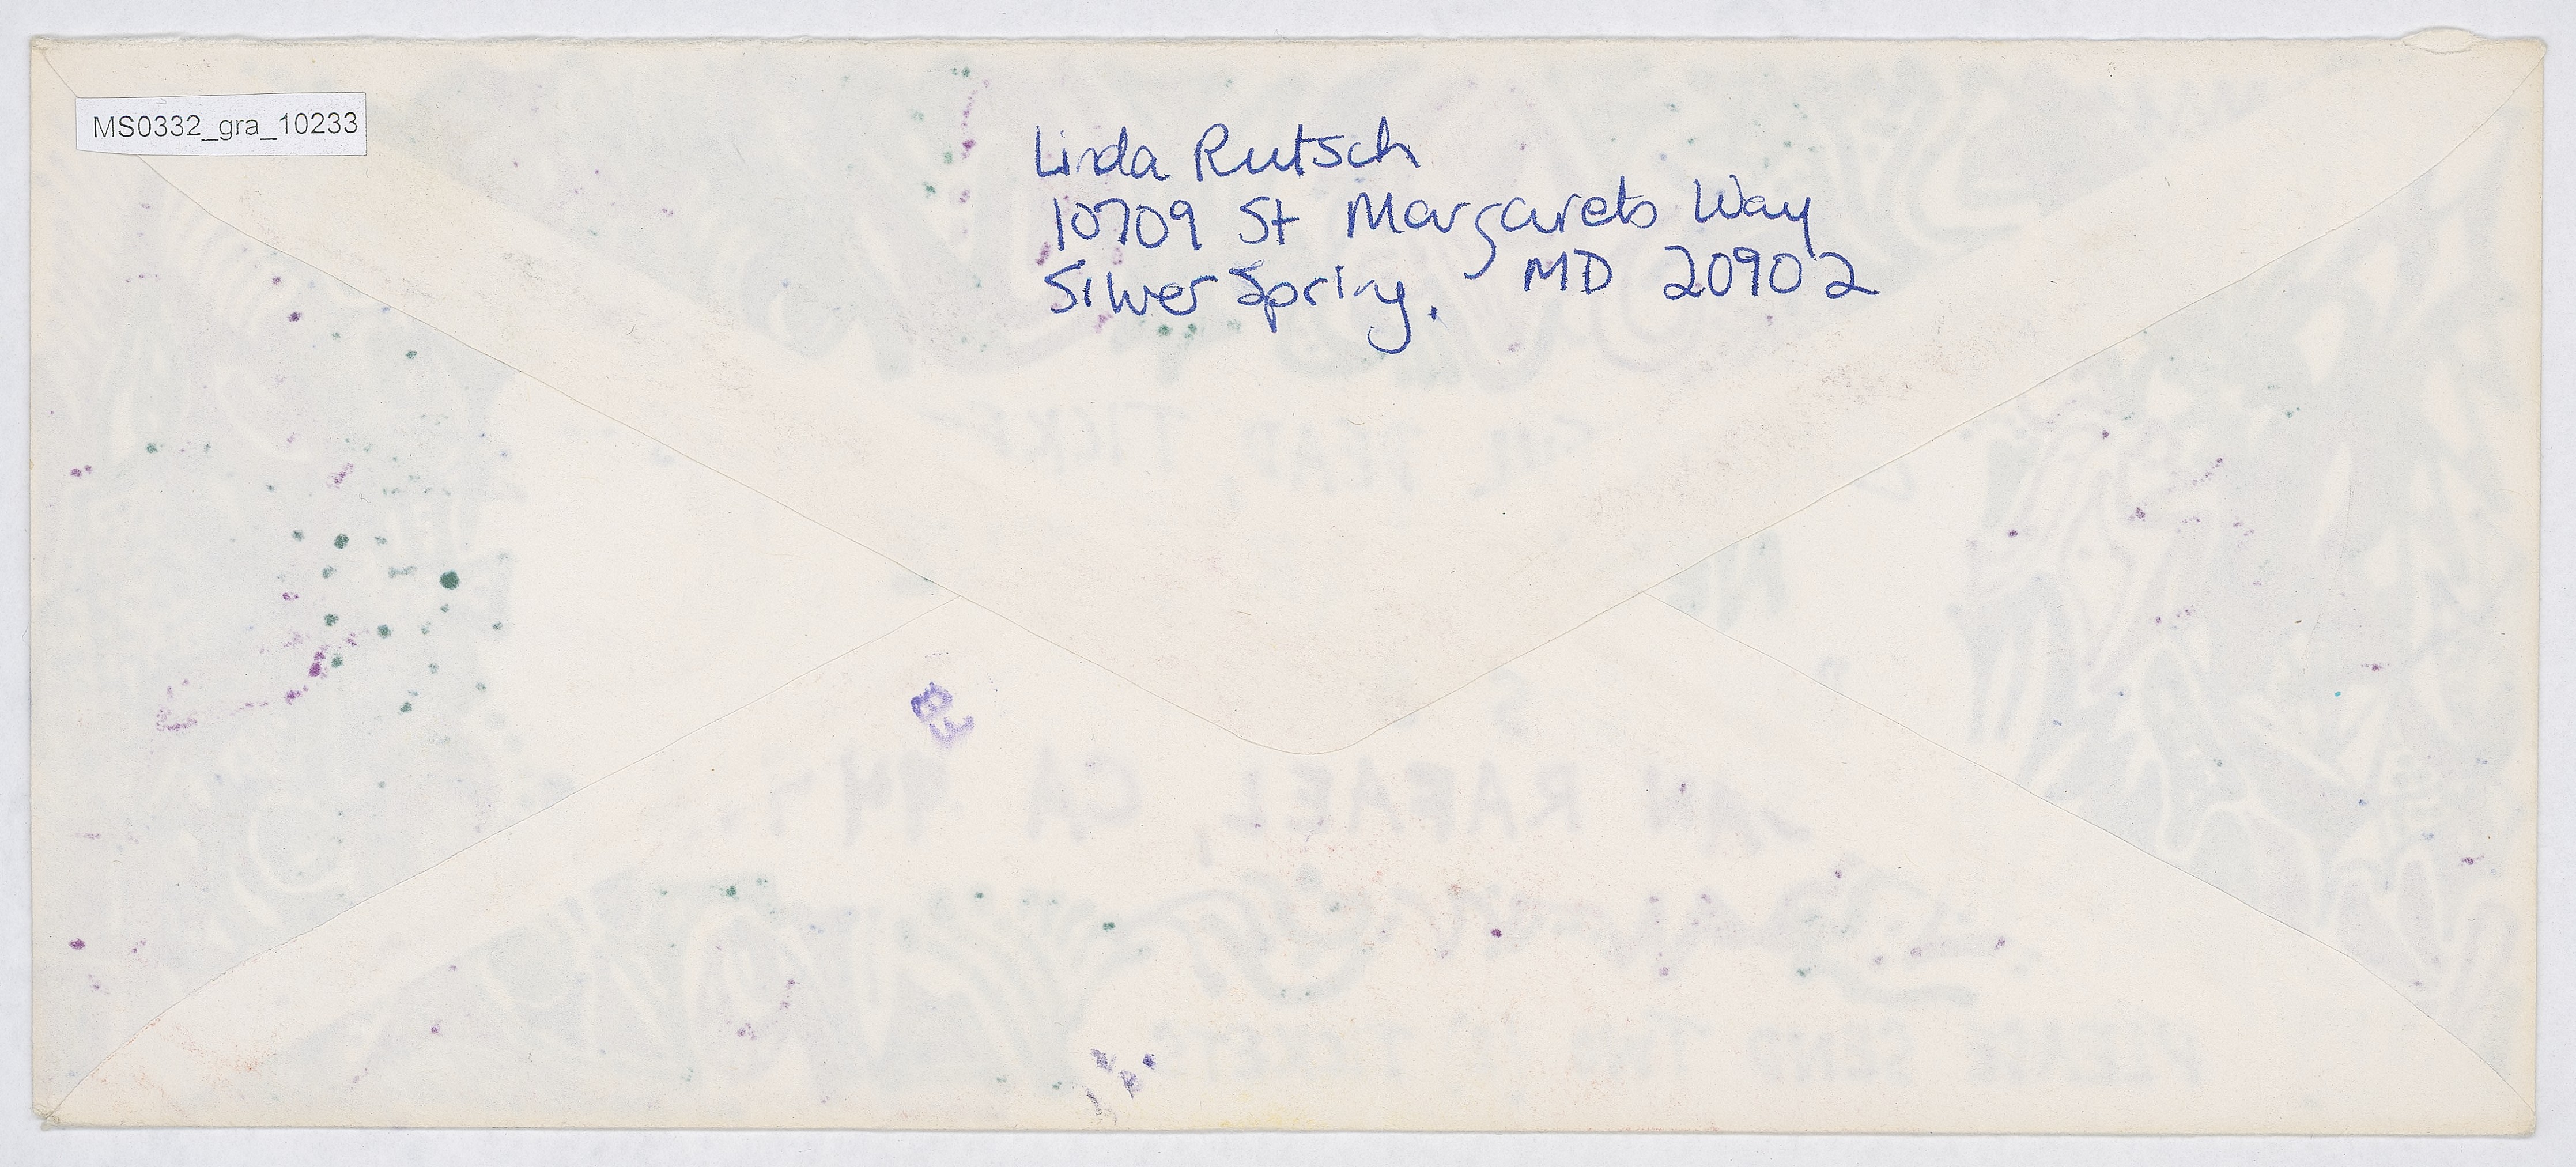 MS0332_gra_10233
Linda Rutsch
10709 St Margarets Way
Silver Spring. MD 20902